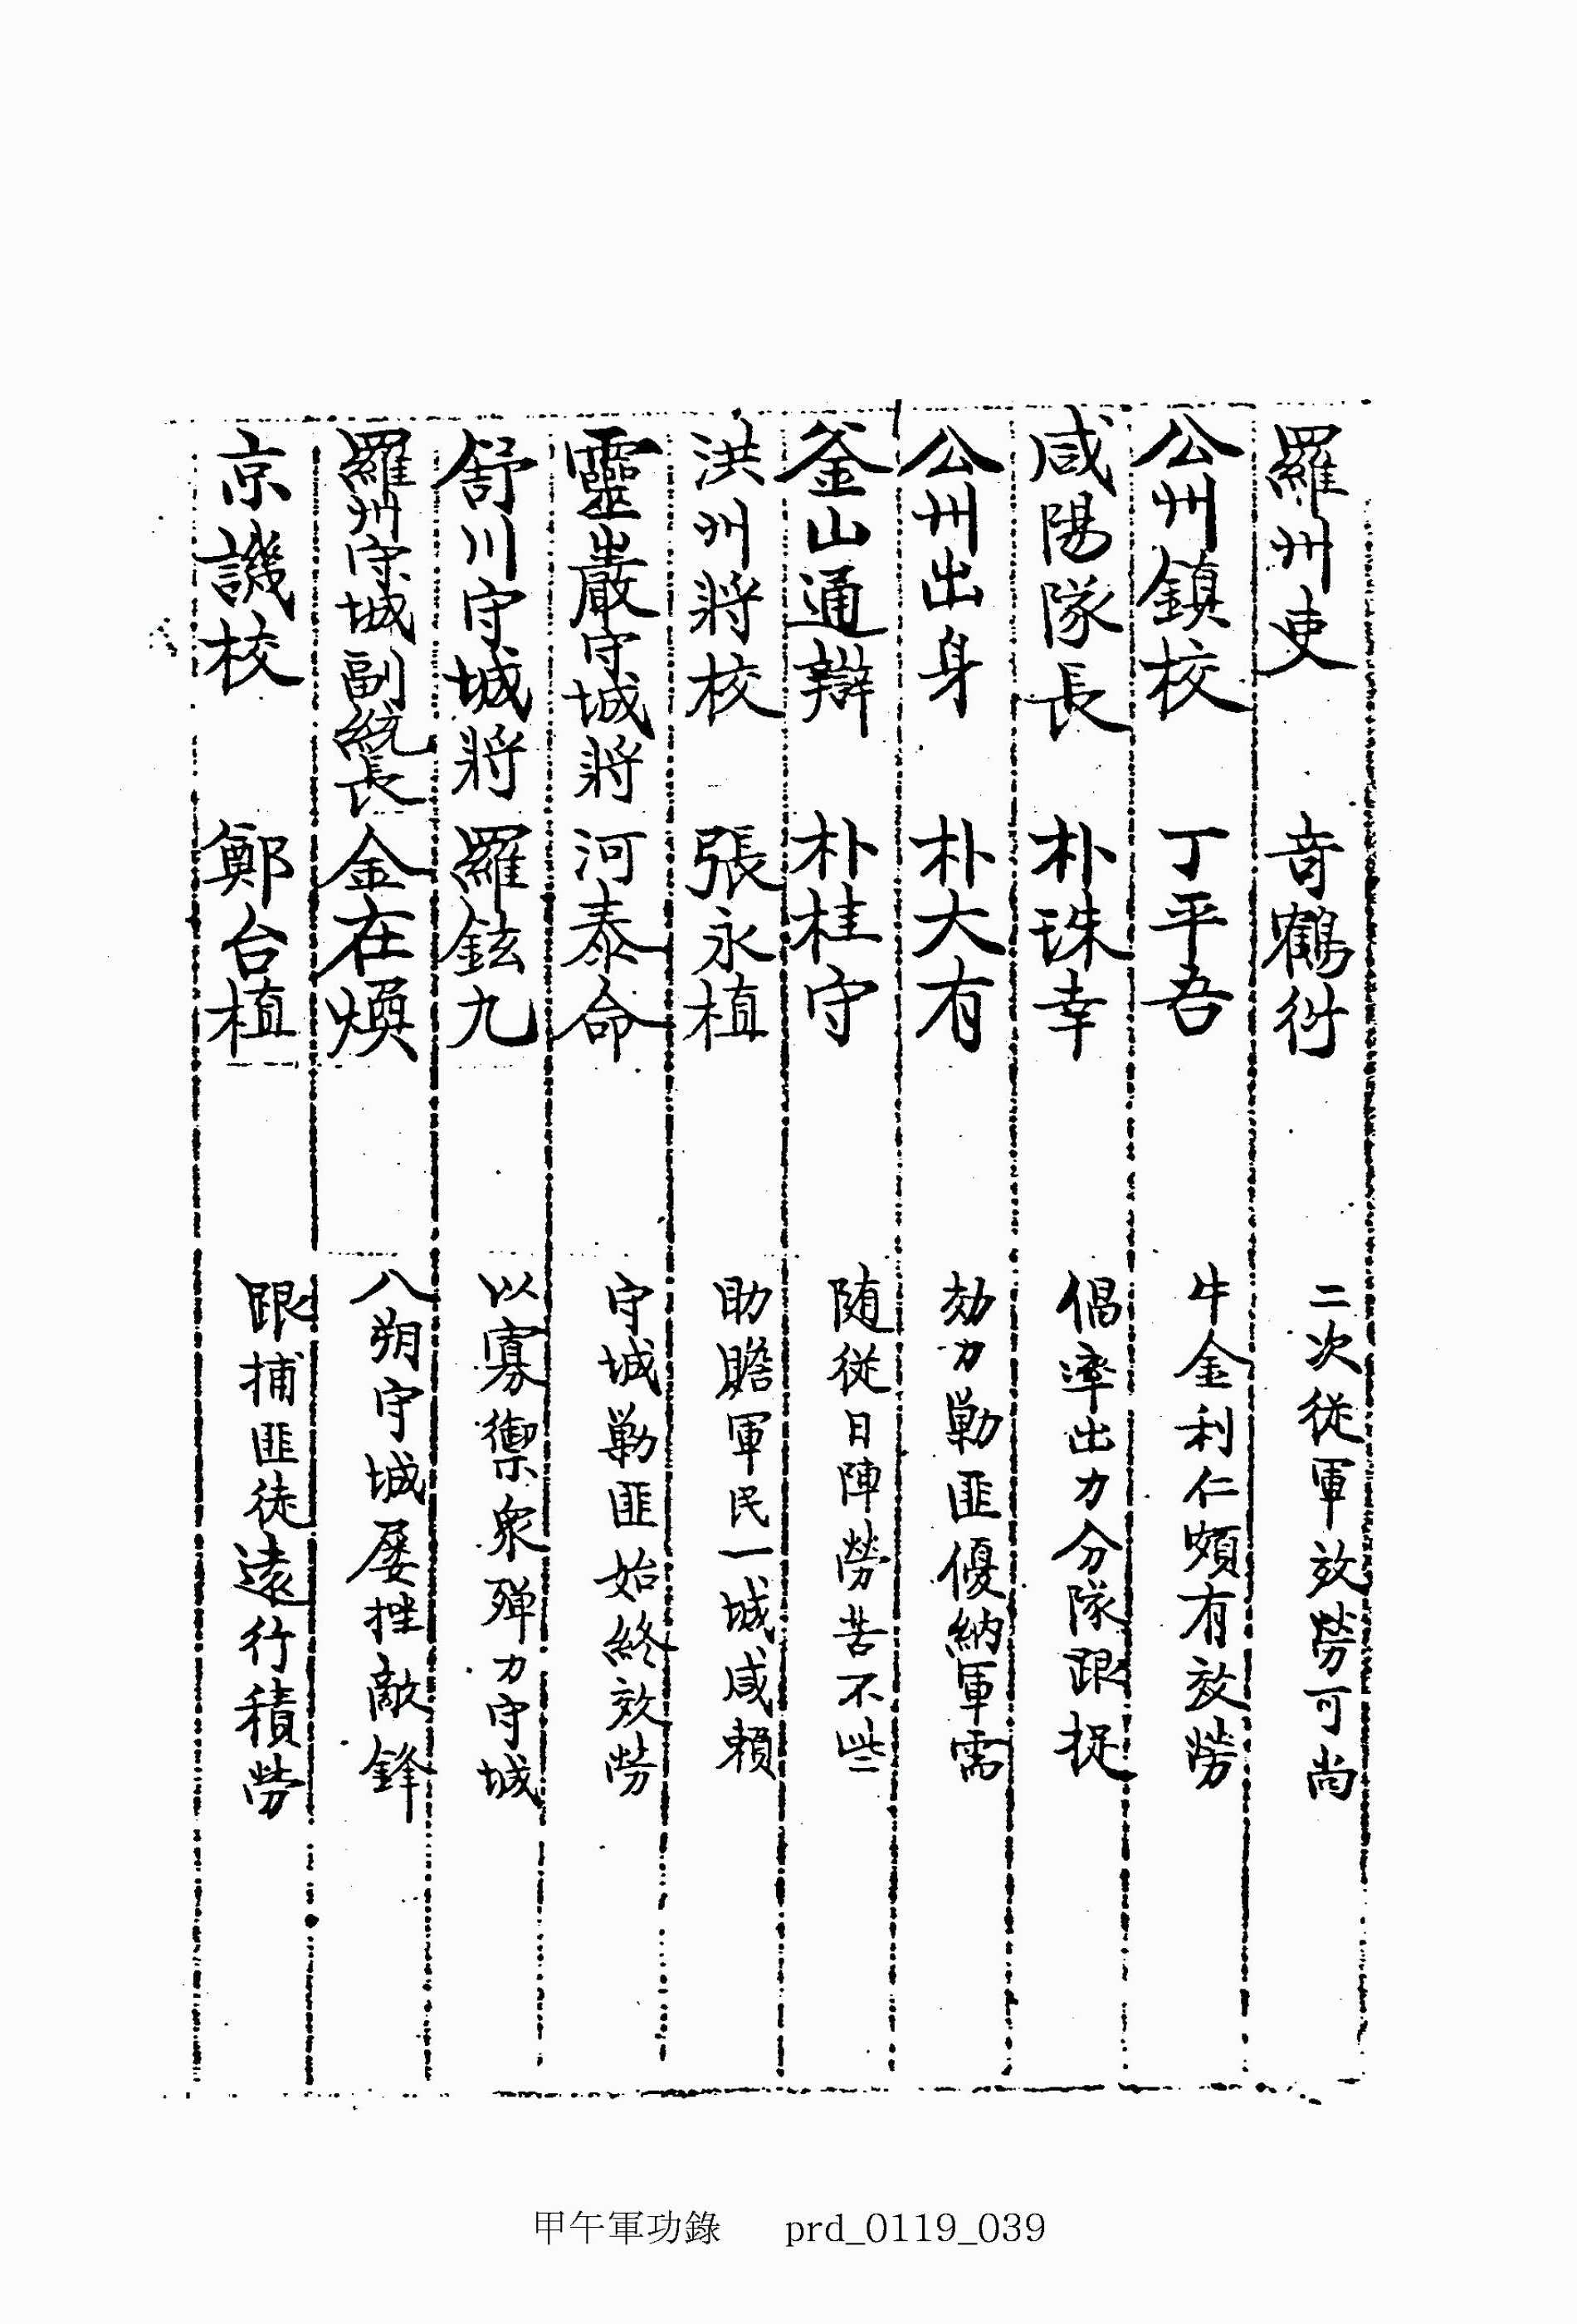 羅州吏 昔鶴衍 二次從軍效勞可尚
公州鎮校 丁平吾 牛金利仁頗有效勞
咸陽隊長 朴珠幸 倡率出力分隊跟捉
公州出身 朴大有 効力勦匪優納軍需
釜山通辯 朴桂守 随從日陣勞苦不些
洪州將校 張永植 助贍軍民一城咸賴
靈巖守城將 河泰命 守城勦匪始終效勞
舒川守城將 羅鉉九 以寡禦衆殫力守城
羅州守城副統長 金在煥 八朔守城屡挫敵鋒
京譏校 鄭台植 跟捕匪徒遠行積勞
甲午軍功錄 prd_0119_039